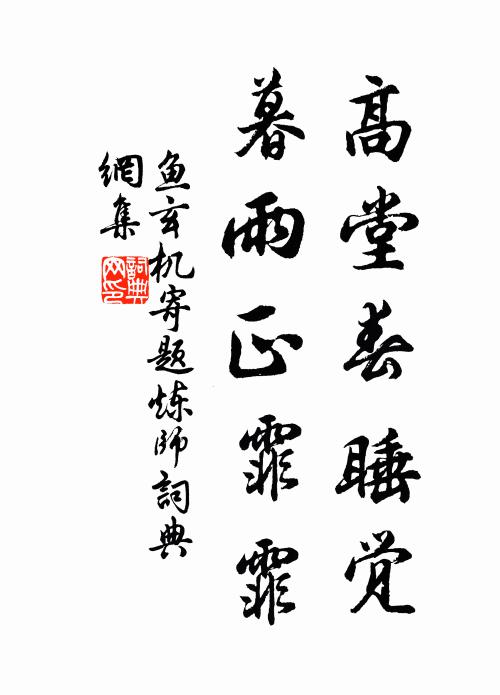 高堂春睡觉
暮雨正霏霏
鱼玄机寄题炼师詞典
網集
詞典网印